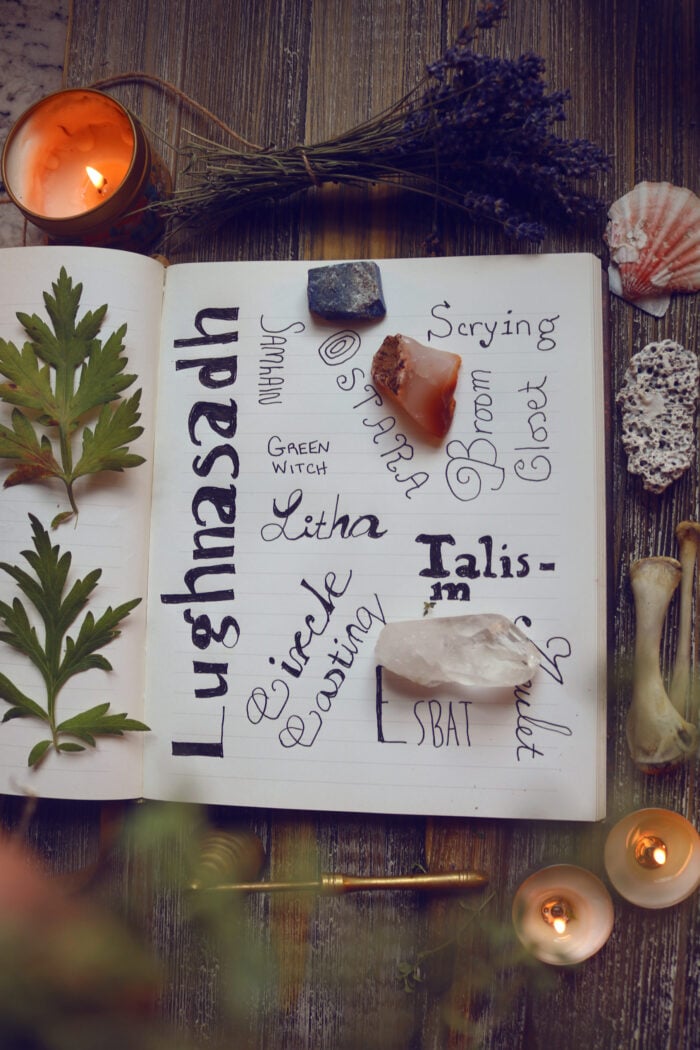 Lughnasadh
SAMHAIN
OSTARA
Scrying
Broom
Closet
GREEN
WITCH
Litha
Talis-
m
Circle
Casting
ESBAT